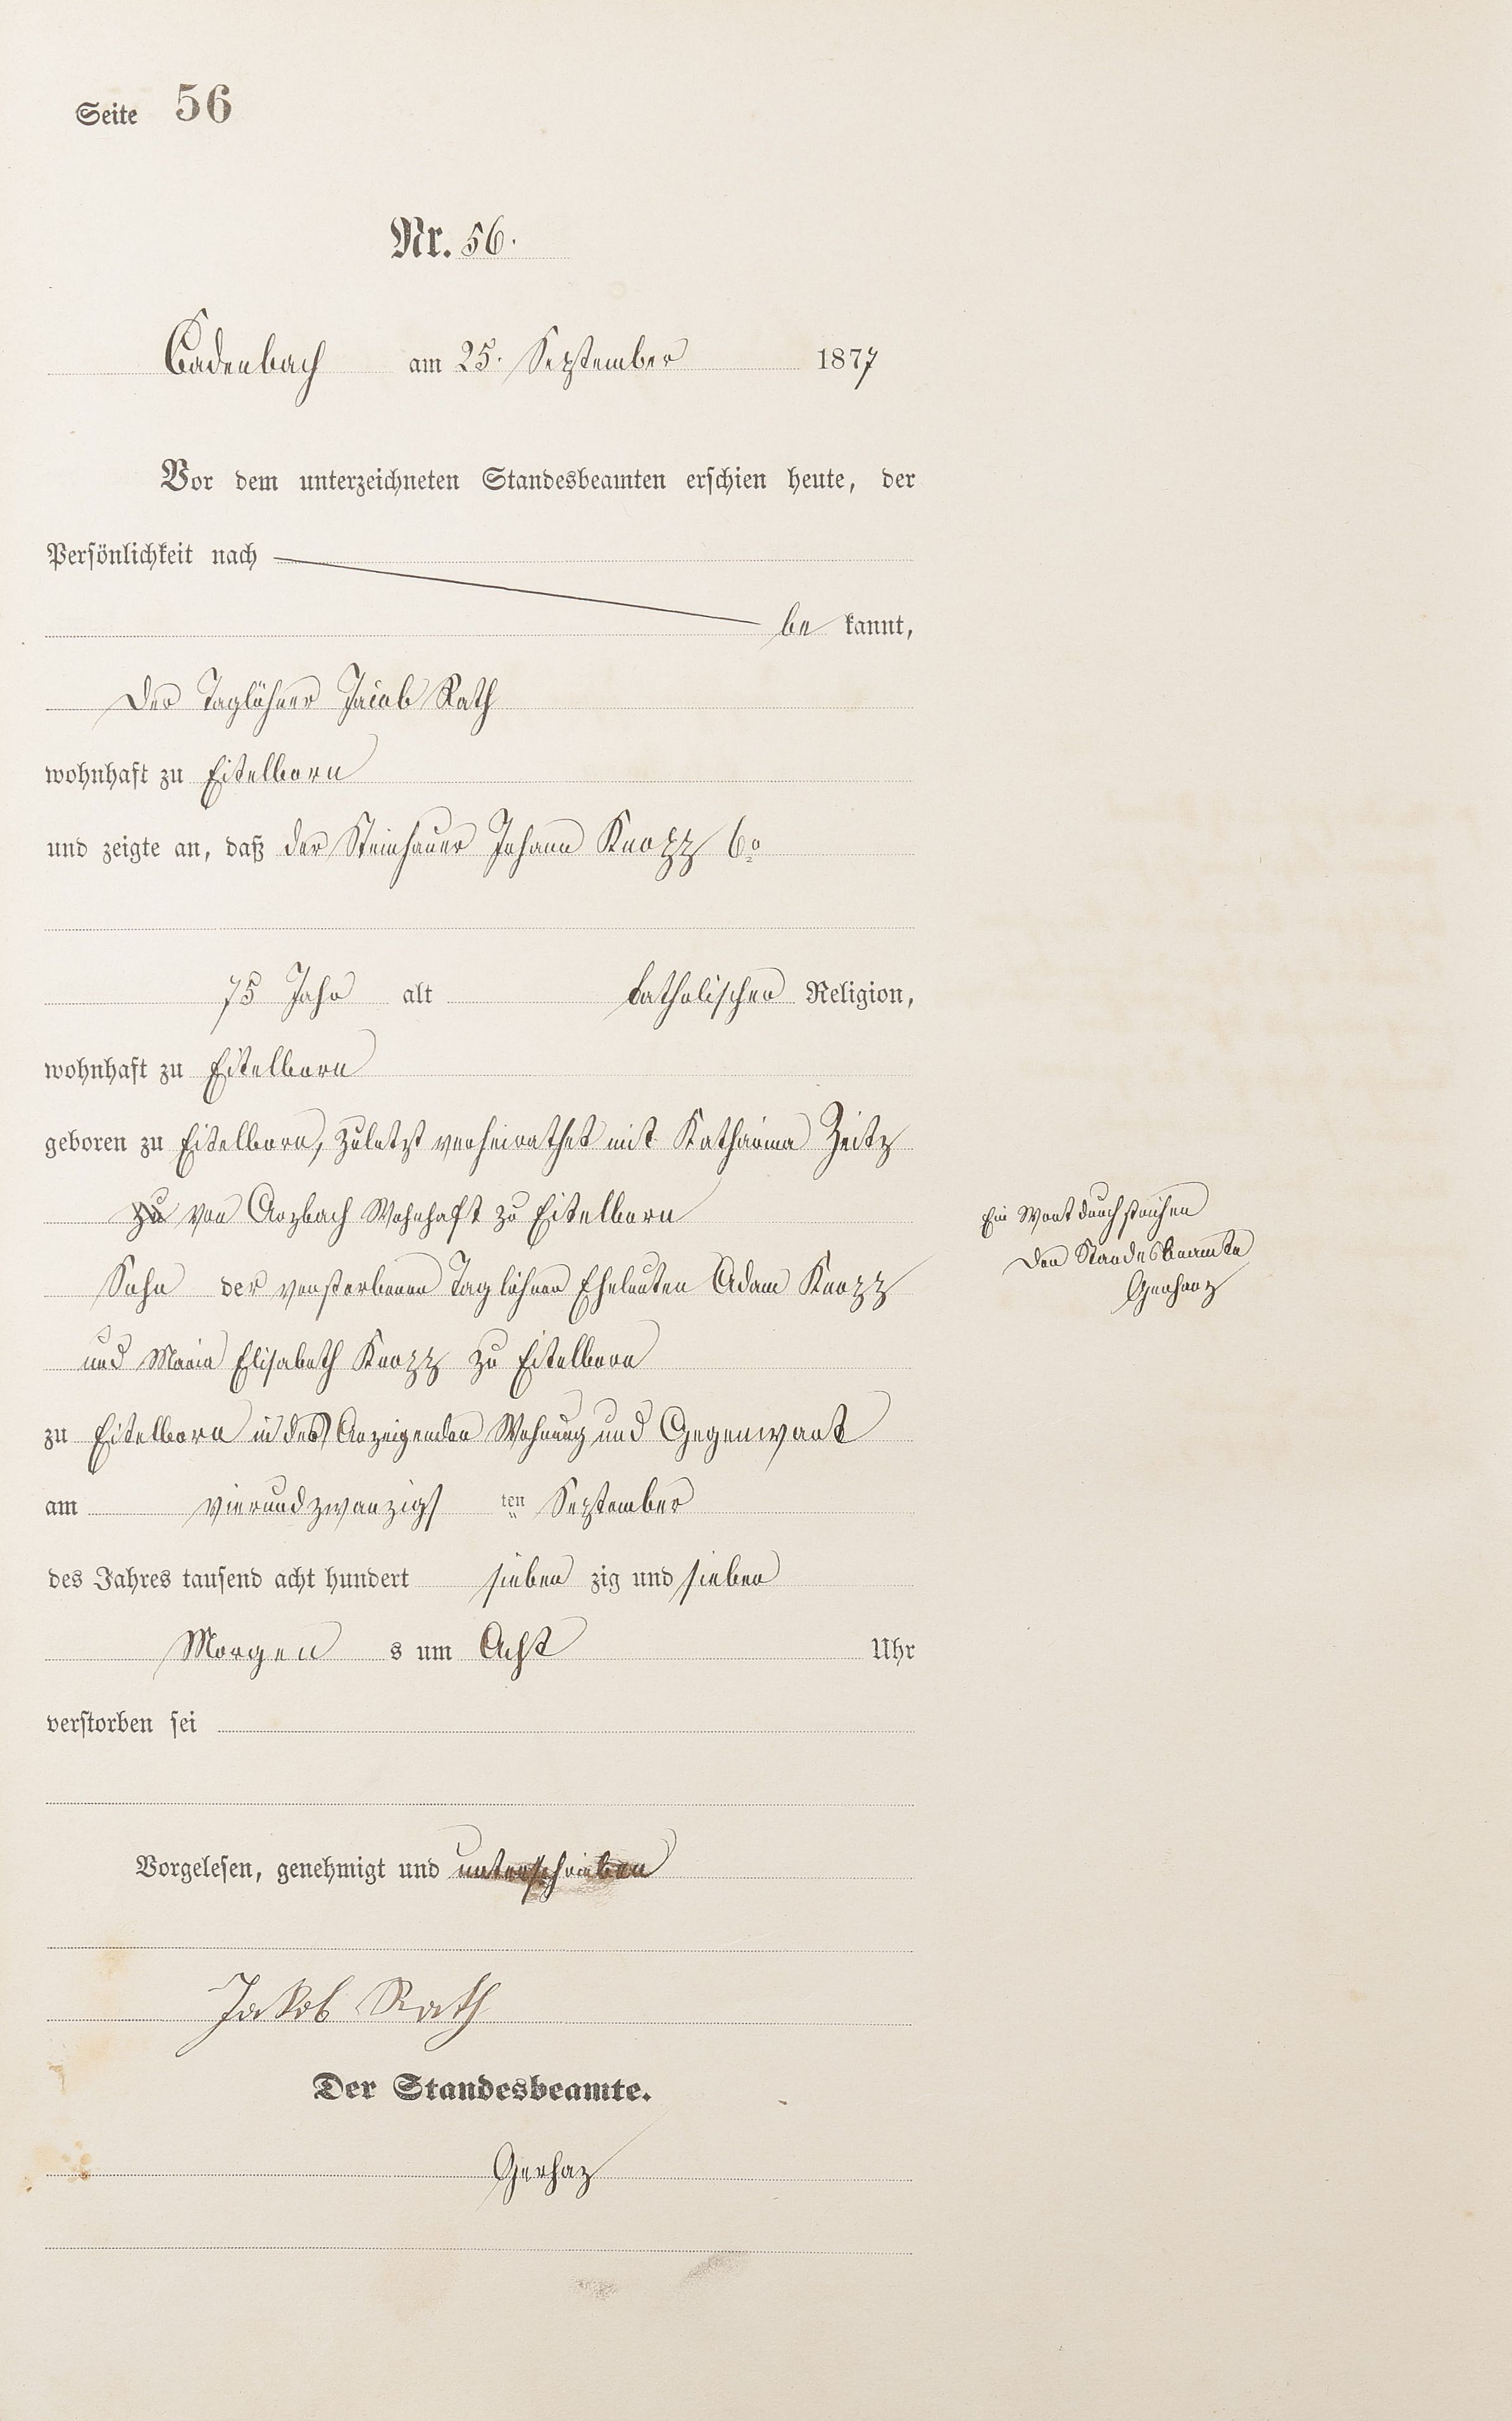 Seite 56
Nr. 56.
Cadenbach am 25. September 1877
Vor dem unterzeichneten Standesbeamten erschien heute, der
Persönlichkeit nach
be kannt,
der Taglöhner Jacob Rath
wohnhaft zu Eitelborn
und zeigte an, daß der Steinhauer Johann Knopp 6o
75 Jahr alt katholischer Religion,
wohnhaft zu Eitelborn
geboren zu Eitelborn, zuletzt verheirathet mit Katharina Zeitz
zu von Arzbach Wohnhaft zu Eitelborn
Sohn der verstorbenen Taglöhner Eheleuten Adam Knopp
und Maria Elisabeth Knopp zu Eitelborn
zu Eitelborn in des Anzeigenden Wohnung und Gegenwart
am vierundzwanzigs ten September
des Jahres tausend acht hundert sieben zig und sieben
Morgen s um Acht Uhr
verstorben sei
Vorgelesen, genehmigt und unterschrieben
Jakob Rath
Der Standesbeamte.
Gerhaz
Ein Wort durchstrichen
Der Standesbeamte
Gerharz